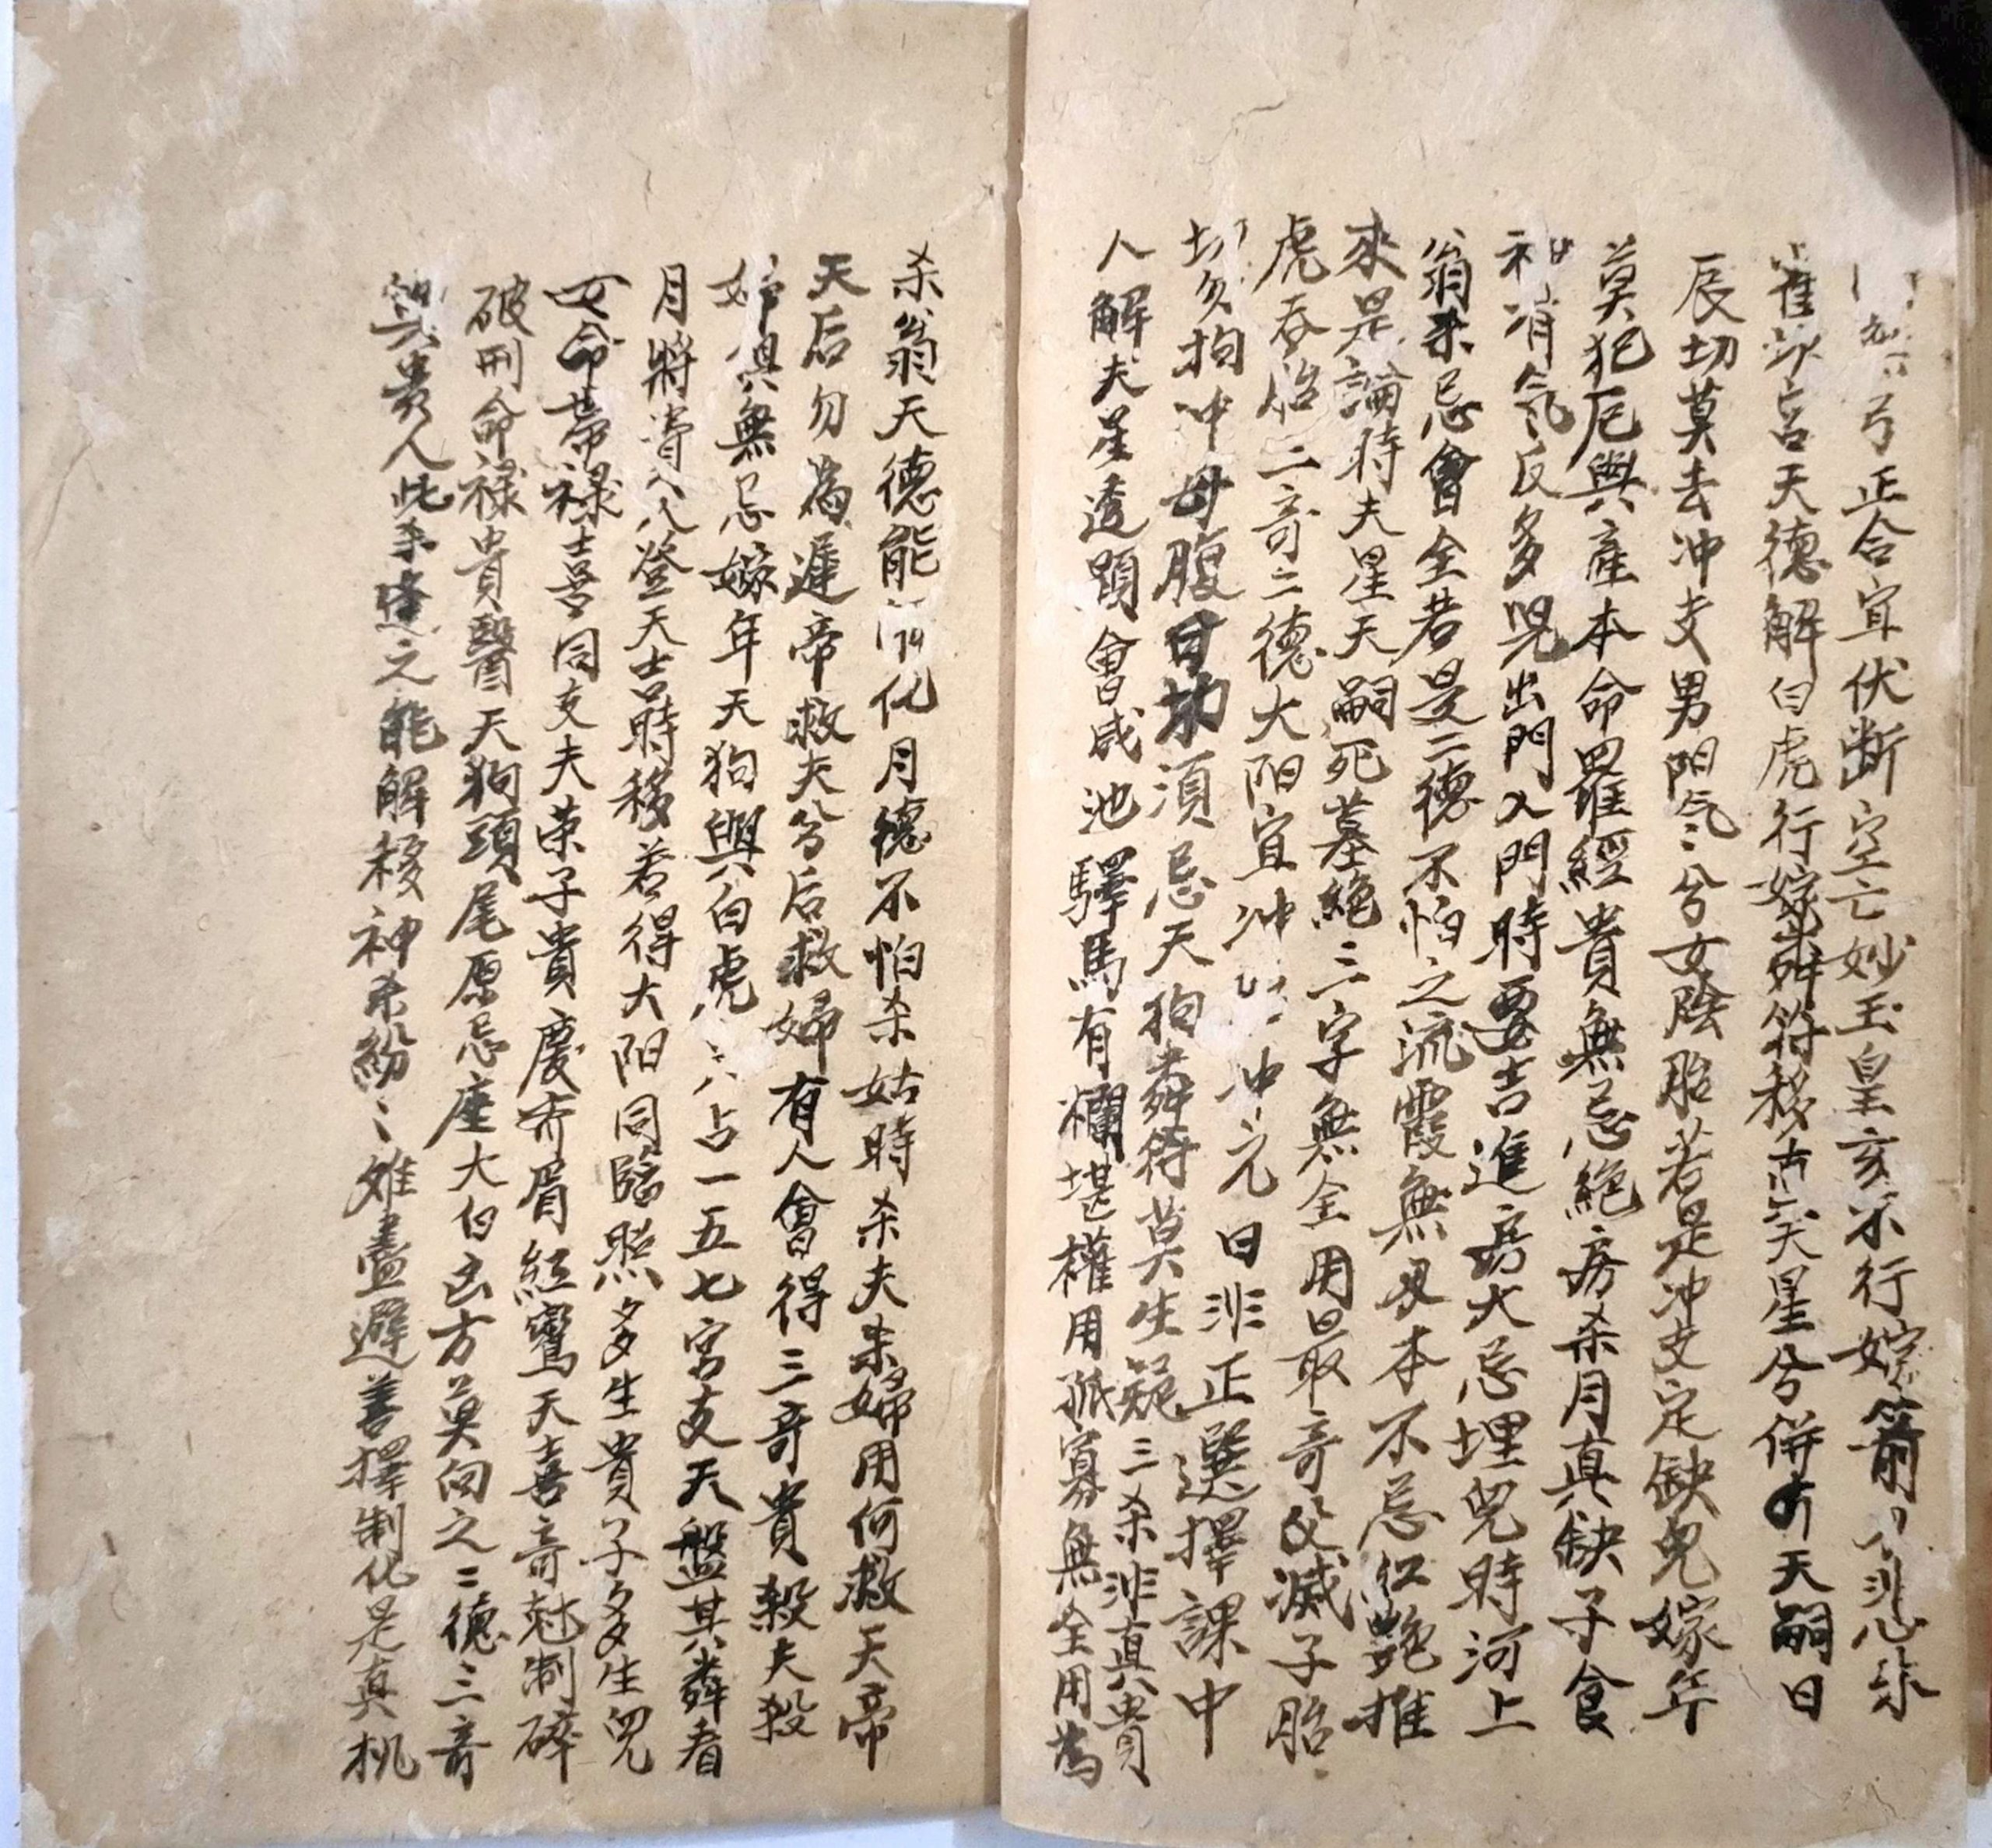 弓正合宜伏断空亡妙玉皇亥不行嫁箭
宫天德解白虎行嫁麟符移六矢星兮併天嗣日
辰切莫去冲支男阳气兮女陰胎若是冲支定缺兒嫁年
莫犯厄與產本命羅經貴無忌絶房杀月真缺子食
神消气反多児出門入門時要吉進房大忌埋兒時河上
翁杀忌會全若是二德不怕之流霞無刃本不忌紅艶推
來是論時夫星天嗣死墓絶三字無全用最奇父滅子胎
虎吞胎二奇二德大阳宜冲冲元日非正選擇課中
切勿拘冲母腹日切須忌天狗麟符莫生疑三杀非真貴
人解夫星透顕會咸池驛馬有欄堪權用孤寡無全用為
杀翁天德能化月德不怕杀姑時杀夫杀婦用何救天帝
天后勿為遲帝救夫兮后救婦有人會得三奇貴殺夫殺
婦俱無忌嫁年天狗與白虎占一五七宫支天盤其麟看
月將貴人登天吉時移若得大阳同臨照多生貴子多生兒
女命帯禄喜同支夫荣子貴慶齐眉紅鸞天喜奇尅制碎
破刑命禄貴醫天狗頭尾原忌座大白凶方莫向之二德三奇
與貴人此杀逢之能解移神杀紛〻难盡避善擇制化是真机